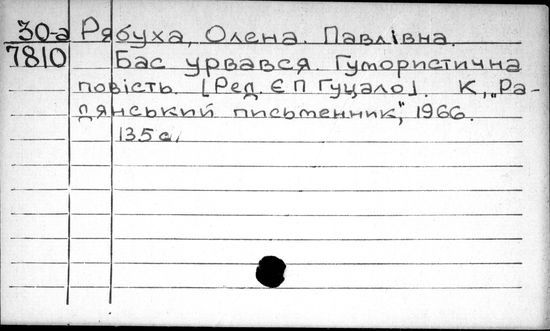 30-а Рябуха, Олена Павлівна.
7810 Бас урвався. Гумористична
повість. [Ред. Є П Гуцало]. К, „Ра-
дянський письменник", 1966.
135 с.